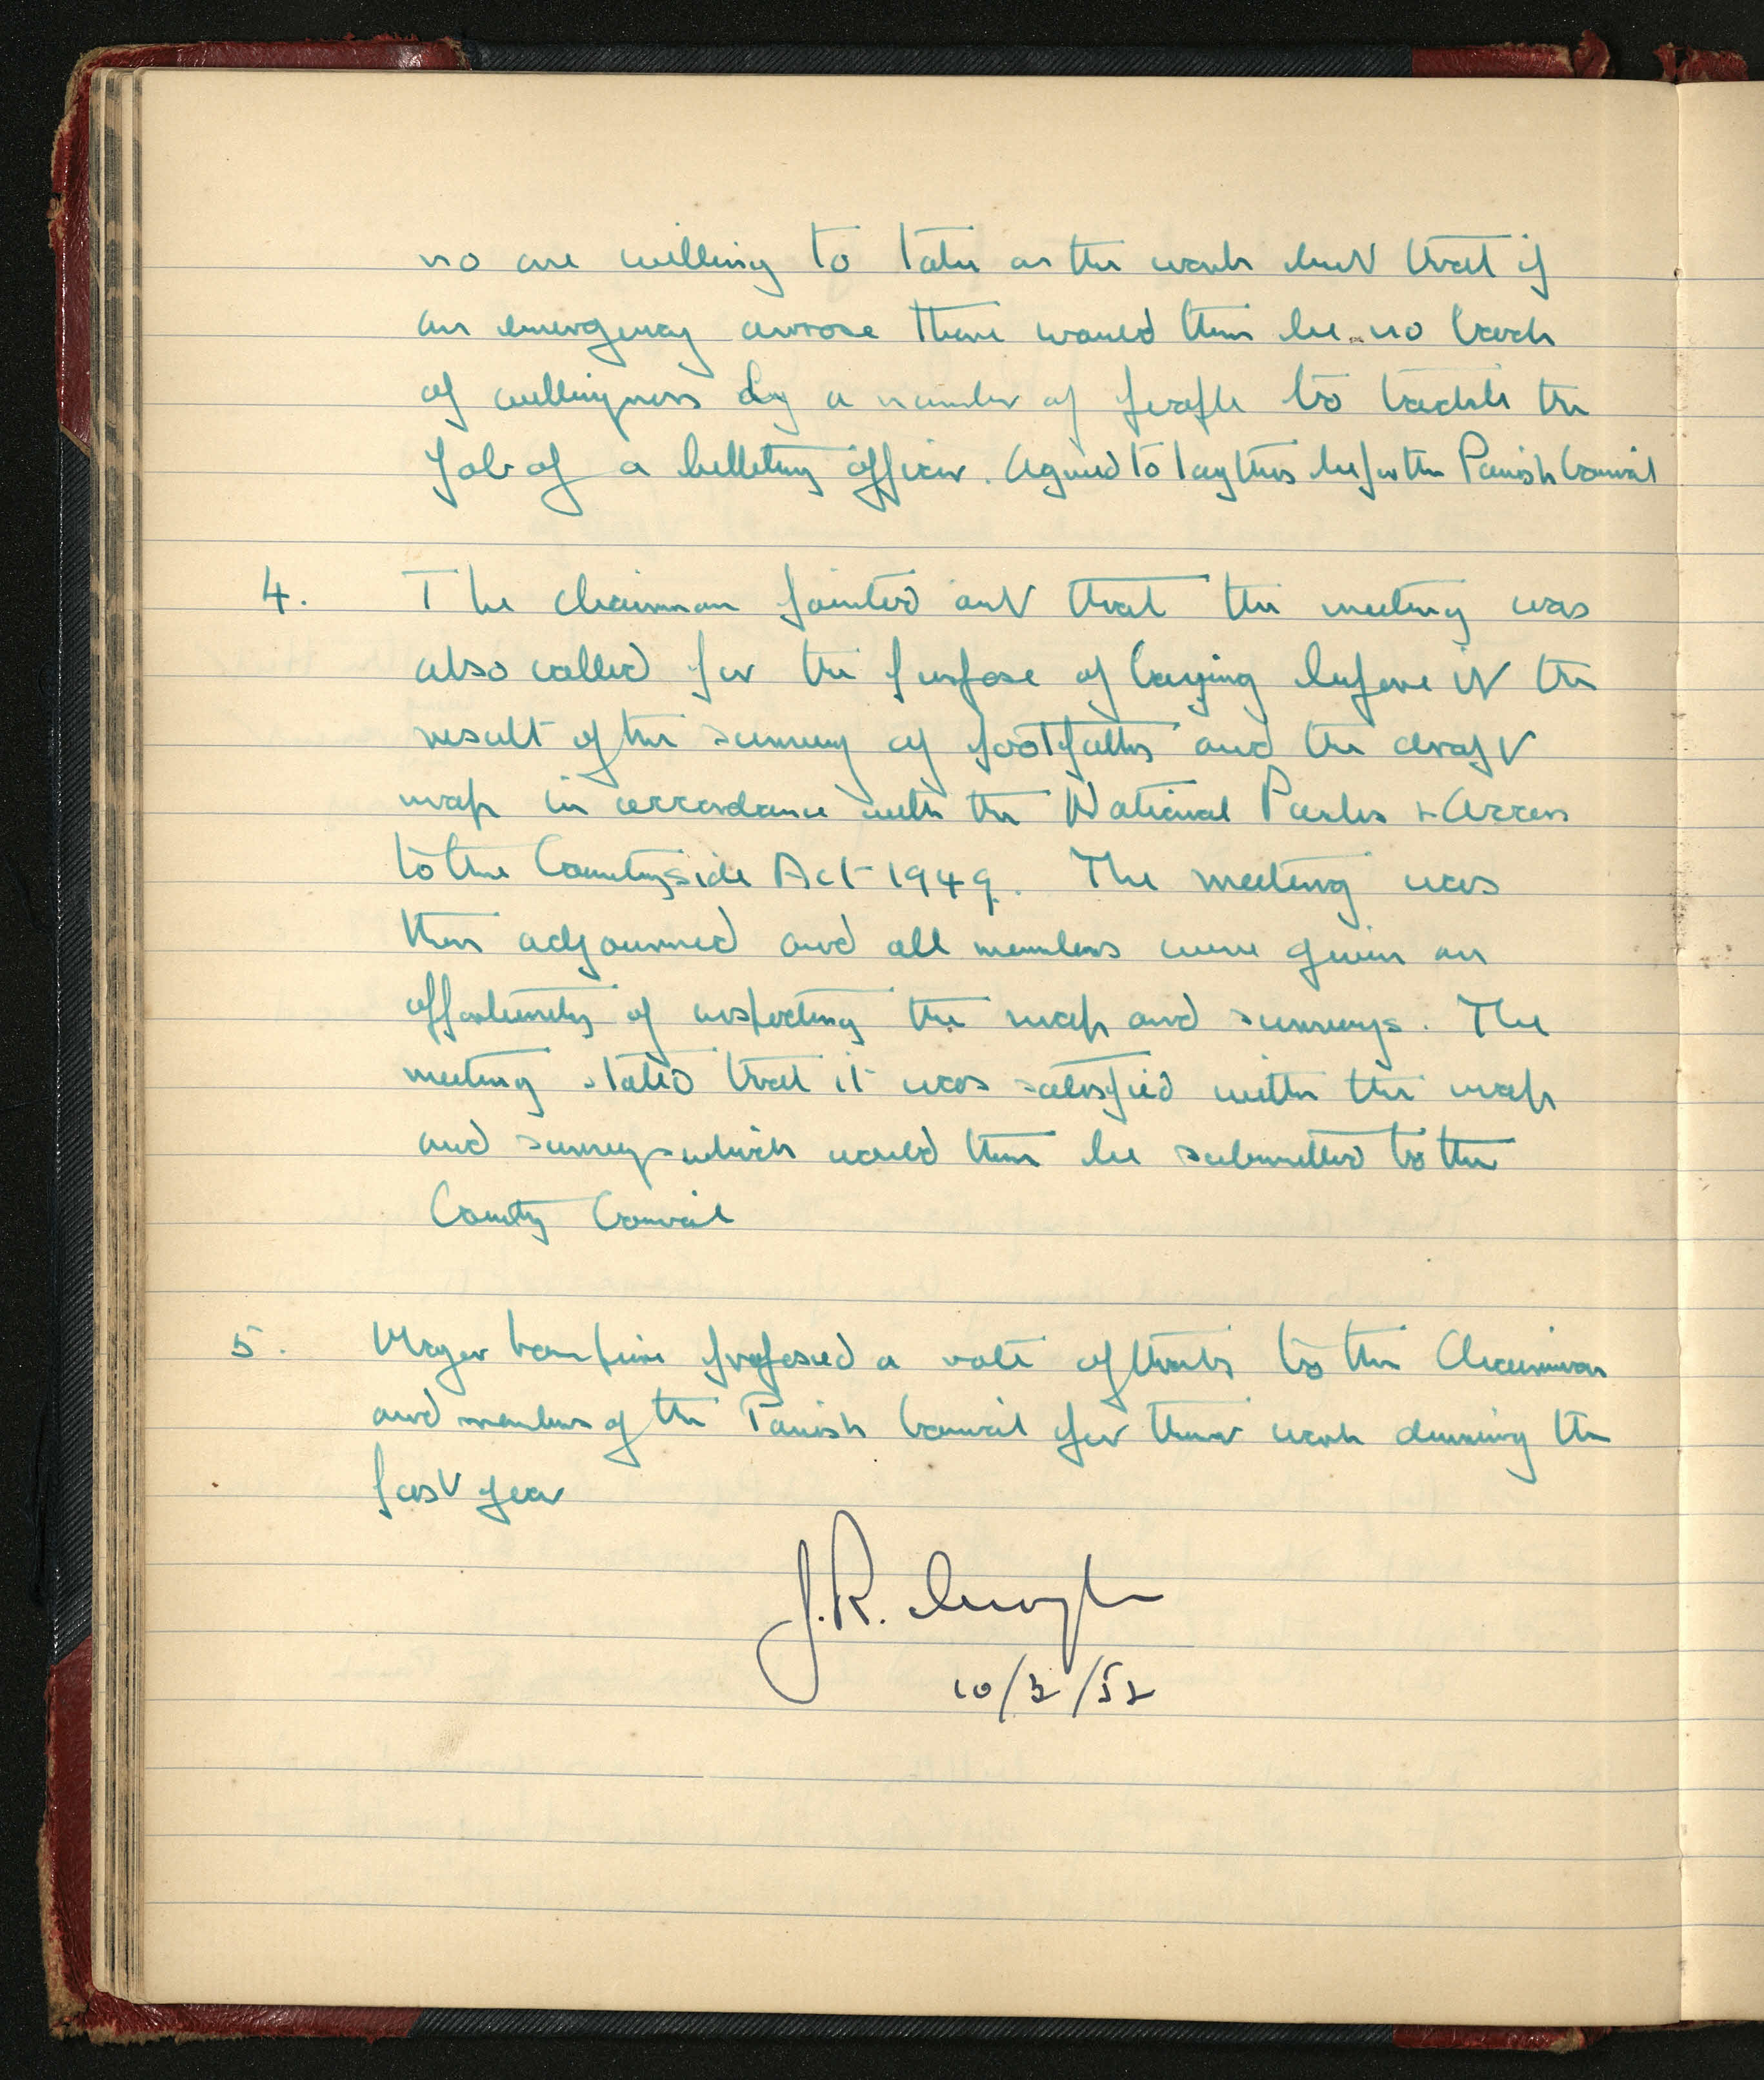 no one willing to take on the work but that if
an emergency arrose there would then be no lack
of willingness by a number of people to tackle the
Job of a billeting officer. Agreed to lay this before the Parish Council
4. The Chairman pointed out that the meeting was
also called for the purpose of laying before it the
result of the survey of footpaths and the draft
map in accordance with the National Parks + Access
to the Countryside Act 1949. The meeting was
then adjourned and all members were given an
opportunity of inspecting the map and surveys. The
meeting stated that it was satisfied with the map
and surveys which would then be submitted to the
County Council
5. Major proposed a vote of thanks to the Chairman
and members of the Parish Council for their work during the
past year
J.R.
10/3/52